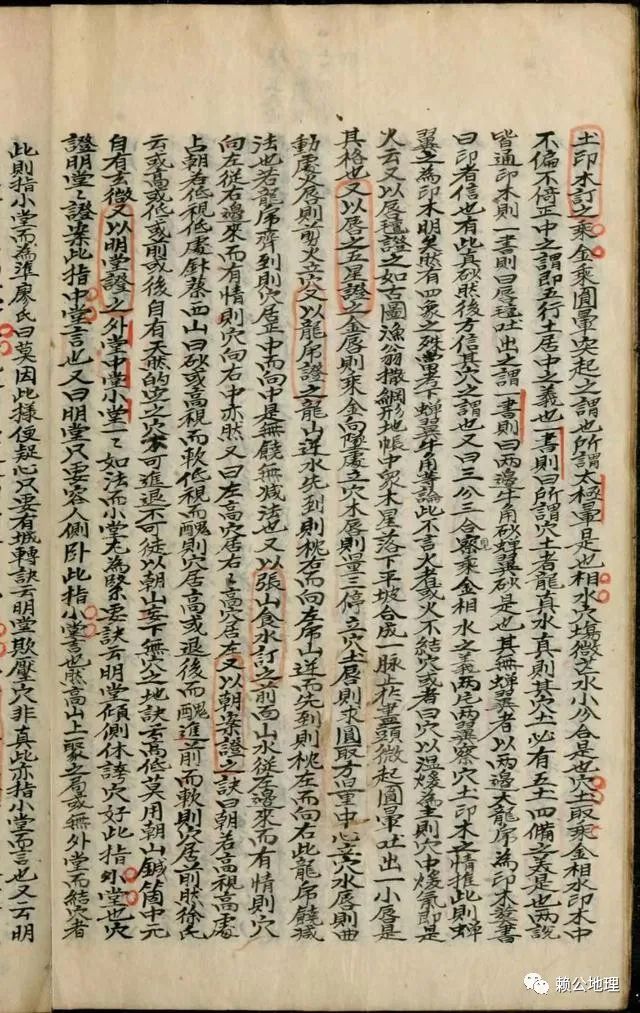 土印木訂之乘金乘圓暈突起之謂也所謂太極暈是也相水穴塲微茫水小分合是也穴土取乘金相水印木中
不偏不倚正中之謂即五行土居中之義也一書則曰所謂穴土者龍真水真則其穴土必有五土四備之義是也兩說
皆通印木則一書則曰唇氊吐出之謂一書則曰兩邊牛角砂蟬翼砂是也其無蟬翼者以兩邊大龍虎為印木葬書
曰印者信也有此真砂然後方信其穴之謂也又曰三分三合見察乘金相水之義兩片兩翼察穴土印木之情推此則蟬
翼之為印木明矣然有四象之殊當看下蟬翼牛角等論此不言火者或火不結穴或者曰穴以溫煖為主則穴中煖氣即是
火云又以唇氊證之如古圖漁翁撒網形地帳中眾木星落下平坡合成一脉止作盡頭微起圓暈吐出一小唇是
其格也又以唇之五星證之金唇則乘金向墜處立穴木唇則量三停立穴土唇則求圓取方量中心立穴水唇則曲
動處火唇則剪火立穴又以龍虎證之龍山逆水先到則枕右而向左虎山逆而先到則枕左而向右此龍虎饒减
法也若龍虎齊到則穴居正中而向中是無饒無减法也又以張山食水訂之前面山水從左邊來而有情則穴
向左從右邊來而有情則穴向右中亦然又曰左高穴居右右高穴居左又以朝案證之訣曰朝若高視高處
占朝若低視低處針蔡西山曰砂或高視而軟低視而醜則穴居高或退後而醜進前而軟則穴居前然徐氏
云或高或低或前或後自有天然的定之穴不可進退不可徒以朝山妄下無穴之地訣云高低莫用朝山鍼箇中元
自有玄微又以明堂證之外堂中堂小堂一一如法而小堂尤為緊要訣云明堂傾側休誇穴好此指外堂也穴
證明堂堂證案此指中堂言也又曰明堂只要容人側卧此指小堂言也然高山上聚之局或無外堂而結穴者
此則指小堂而為準廖氏曰莫因此樣便疑心只要有城轉訣云明堂欺壓穴非真此亦指小堂而言也又云明
赖公地理